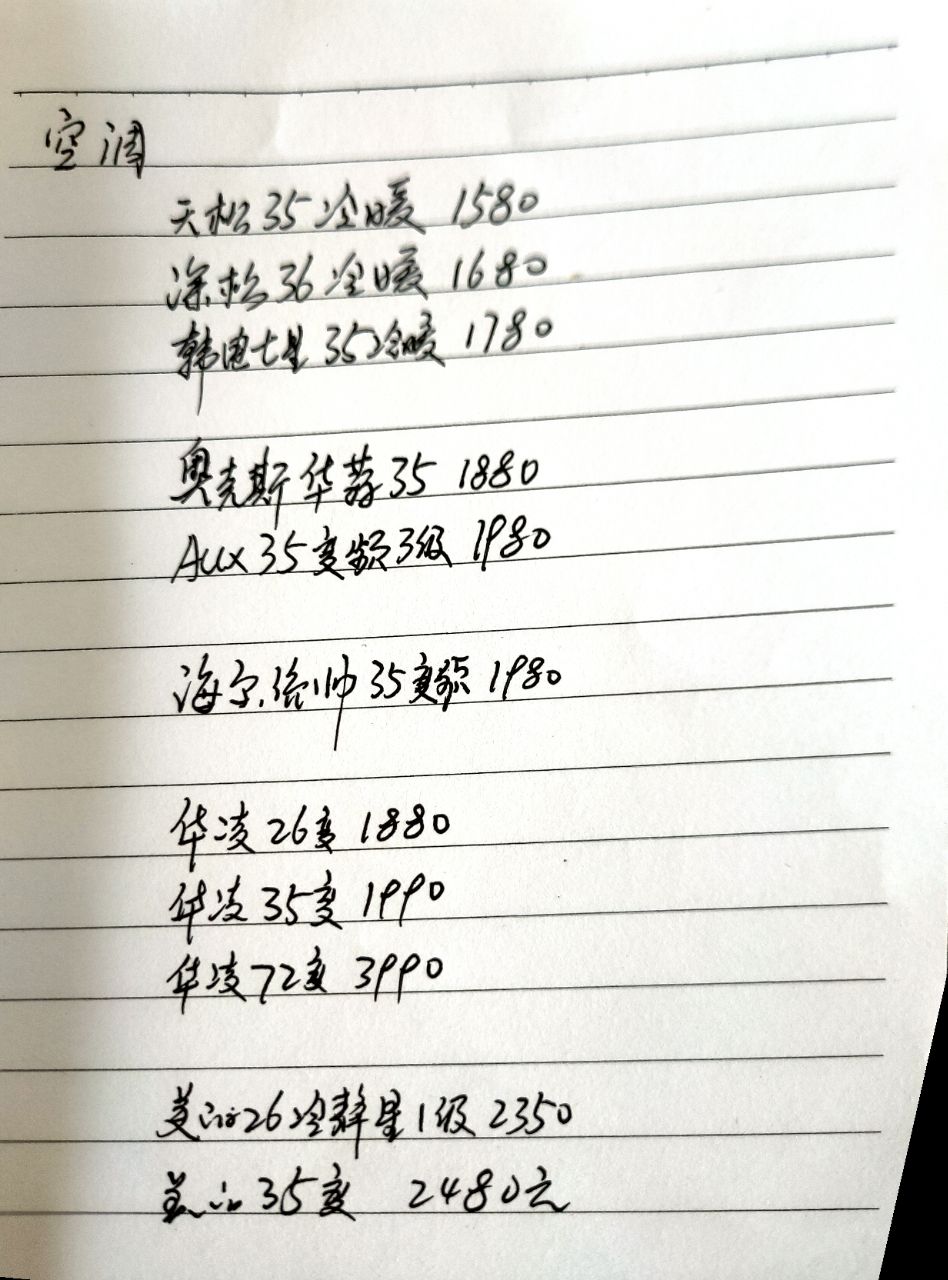 空调
天松35冷暖 1580
深松36冷暖 1680
韩电七星 35冷暖 1780
奥克斯华蒜35 1880
Aux 35变频3级 1980
海尔.统帅35变频 1980
华凌26变 1880
华凌35变 1990
华凌72变 3990
美的26冷静星1级 2350
美的35变 2480元